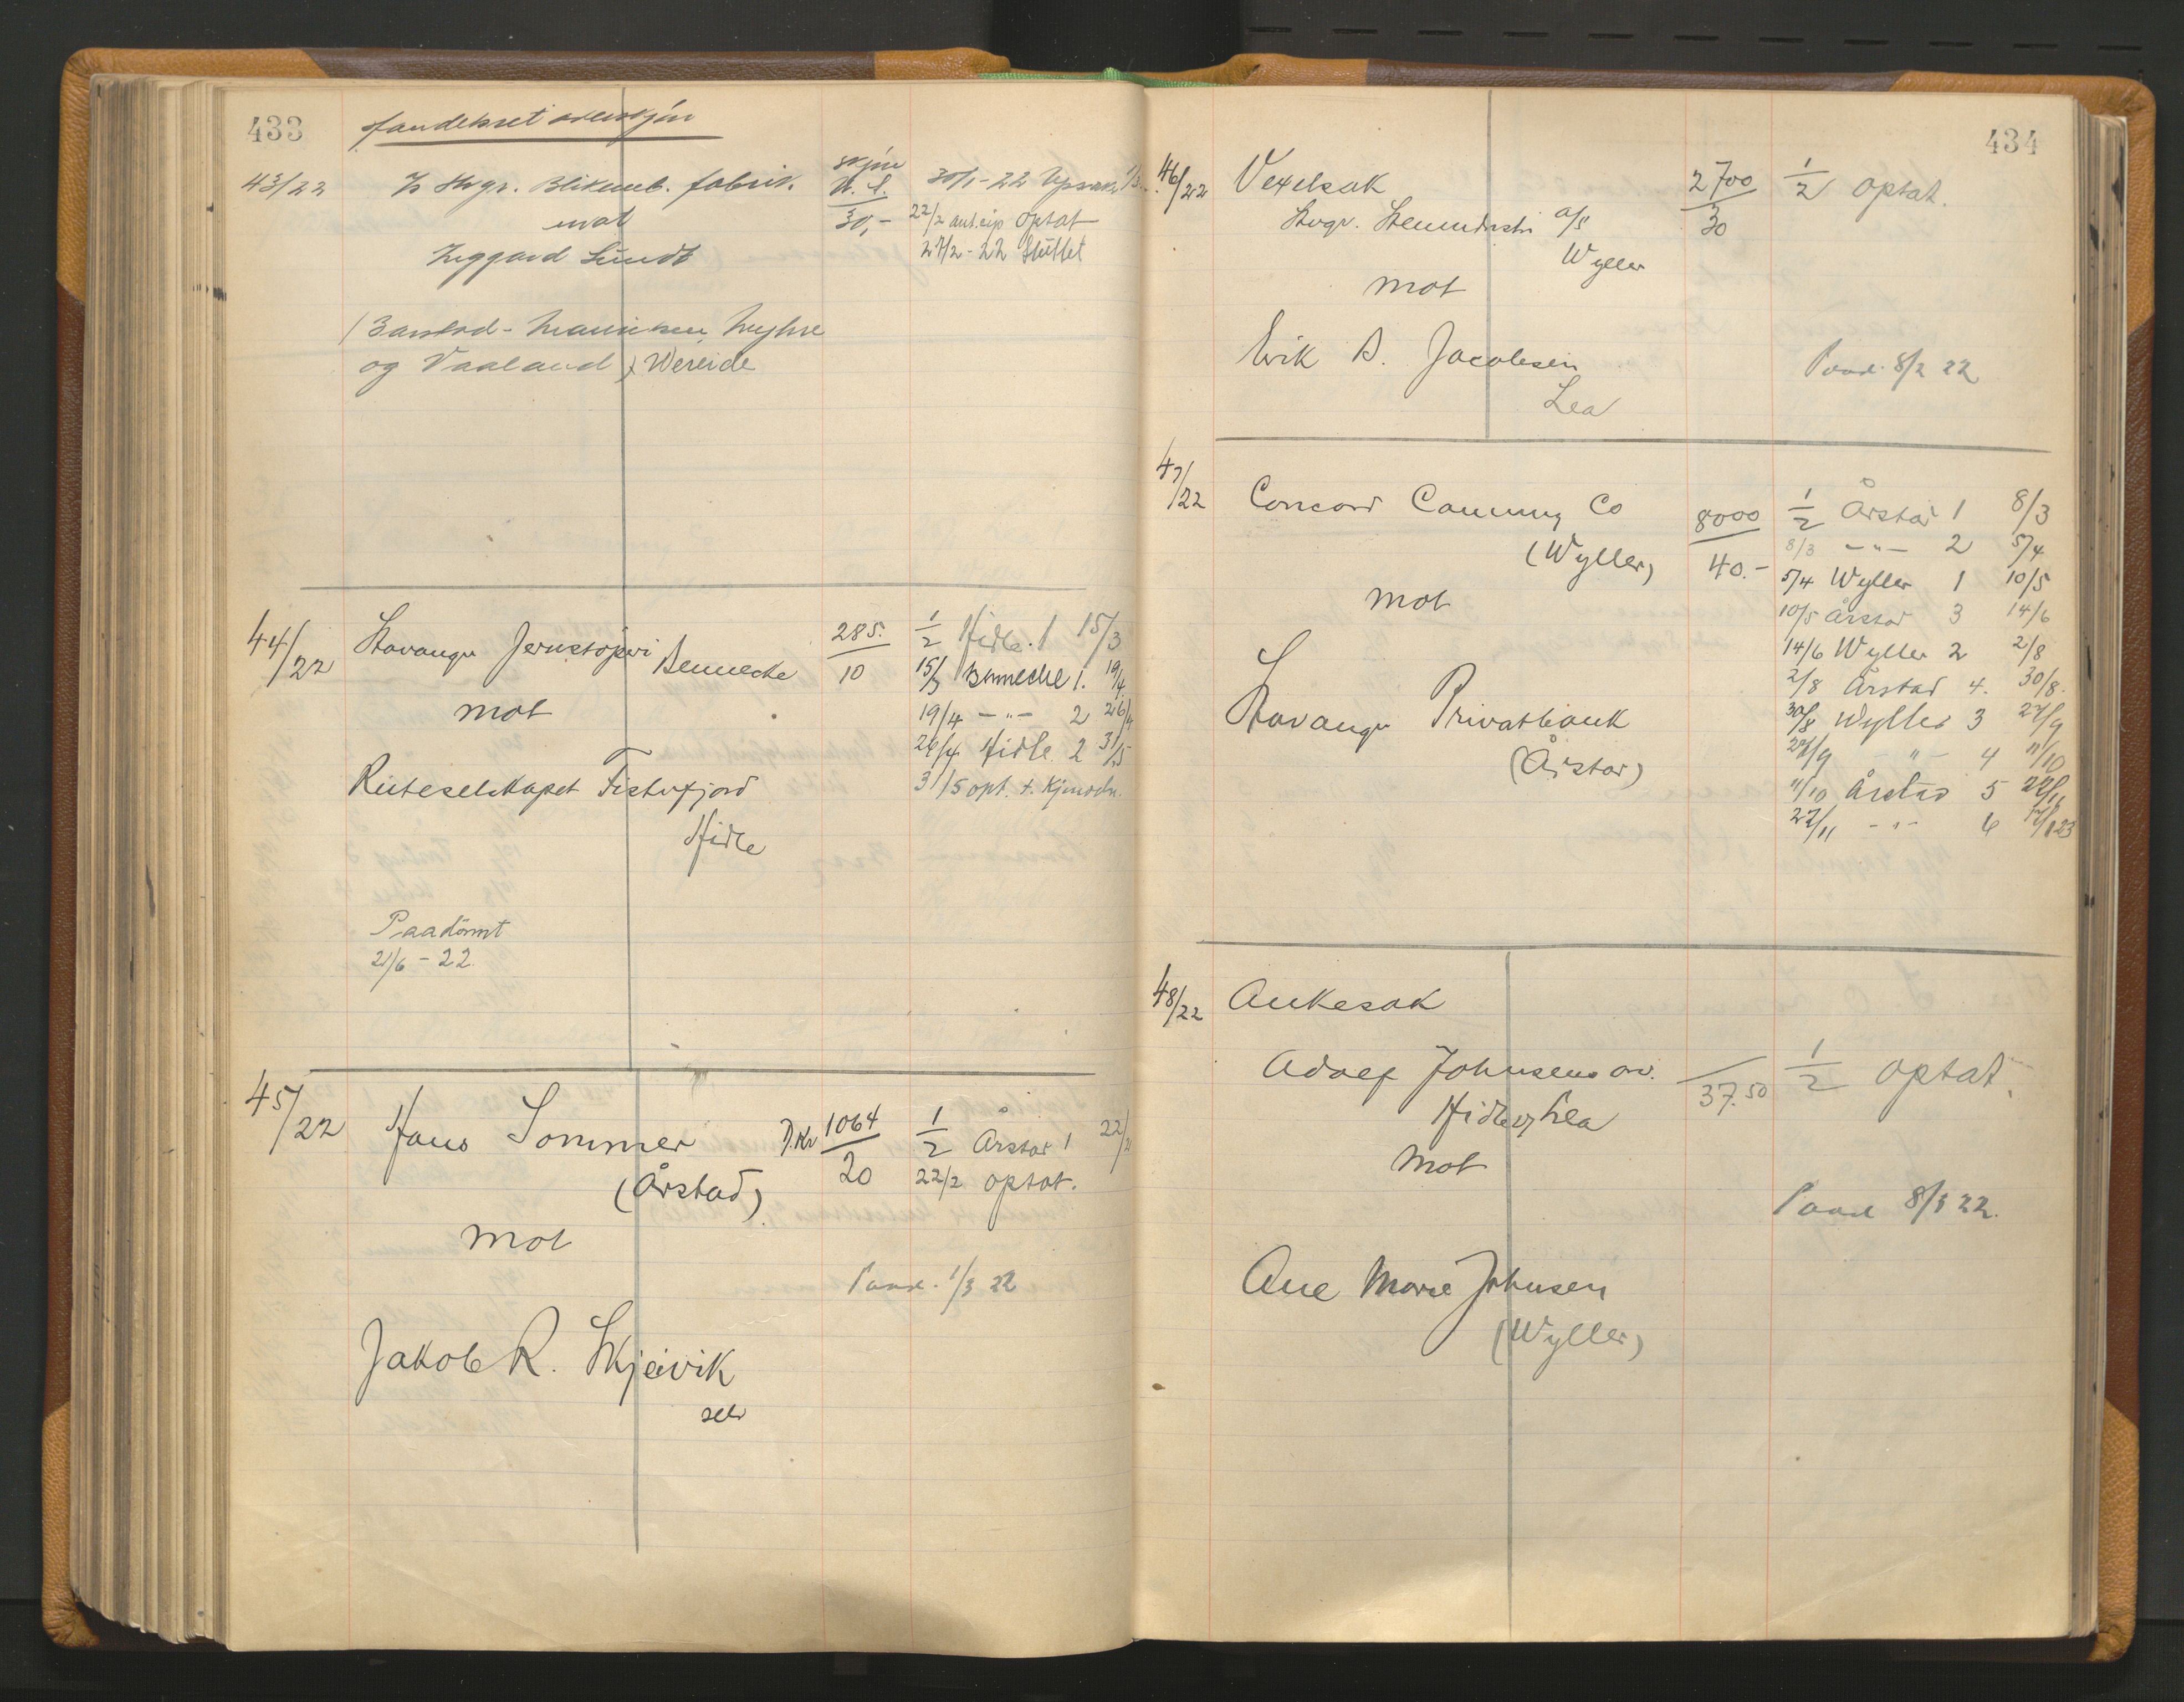 433
43/22
blikemb. fabrik.
mot
Lundt
skjøn
30,-
30/1-22
22/2 optat
27/2-22 Sluttet
og Vaaland), Wereide
44/22
Stavanger Jernstøperi
Bennecke
mot
Ruteselskapet Fisterfjord
Hidle
285.
10
1/2 Hidle. 1 15/3
15/3 Bennecke 1. 19/4
19/4 -"- 2 26/4
26/4 Hidle. 2 31/5
31/5 opt. t. Kjendn.
Paadømt
21/6 - 22.
45/22
Hans Sommer
(Årstad)
mot
Jakob R. Skjeivik
selv
D.Kr 1064
20
1/2 Årstad 1 22/2
22/2 optat.
Paad. 1/3 22
434
46/22
Vexelsak
Stvgr. a/s
Wyller
mot
Erik B. Jacobsen
Lea
2700
30
1/2 optat.
Paad. 8/2 22
47/22
Concord Canning Co
(Wyller)
mot
Stavanger Privatbank
(Årstad)
8000
40.-
1/2 Årstad 1 8/3
8/3 -"- 2 5/4
5/4 Wyller 1 10/5
10/5 Årstad 3 14/6
14/6 Wyller 2 2/8
2/8 Årstad 4. 30/8.
30/8 Wyller 3 27/9
27/9 -"- 4 11/10
11/10 Årstad 5 22/11
22/11 -"- 6 17/1 23
48/22
Ankesak
Adolf Johnsens
Hidle og Lea
mot
Ane Marie Johnsen
(Wyller)
37.50
1/2 optat.
Paad 8/3 22.